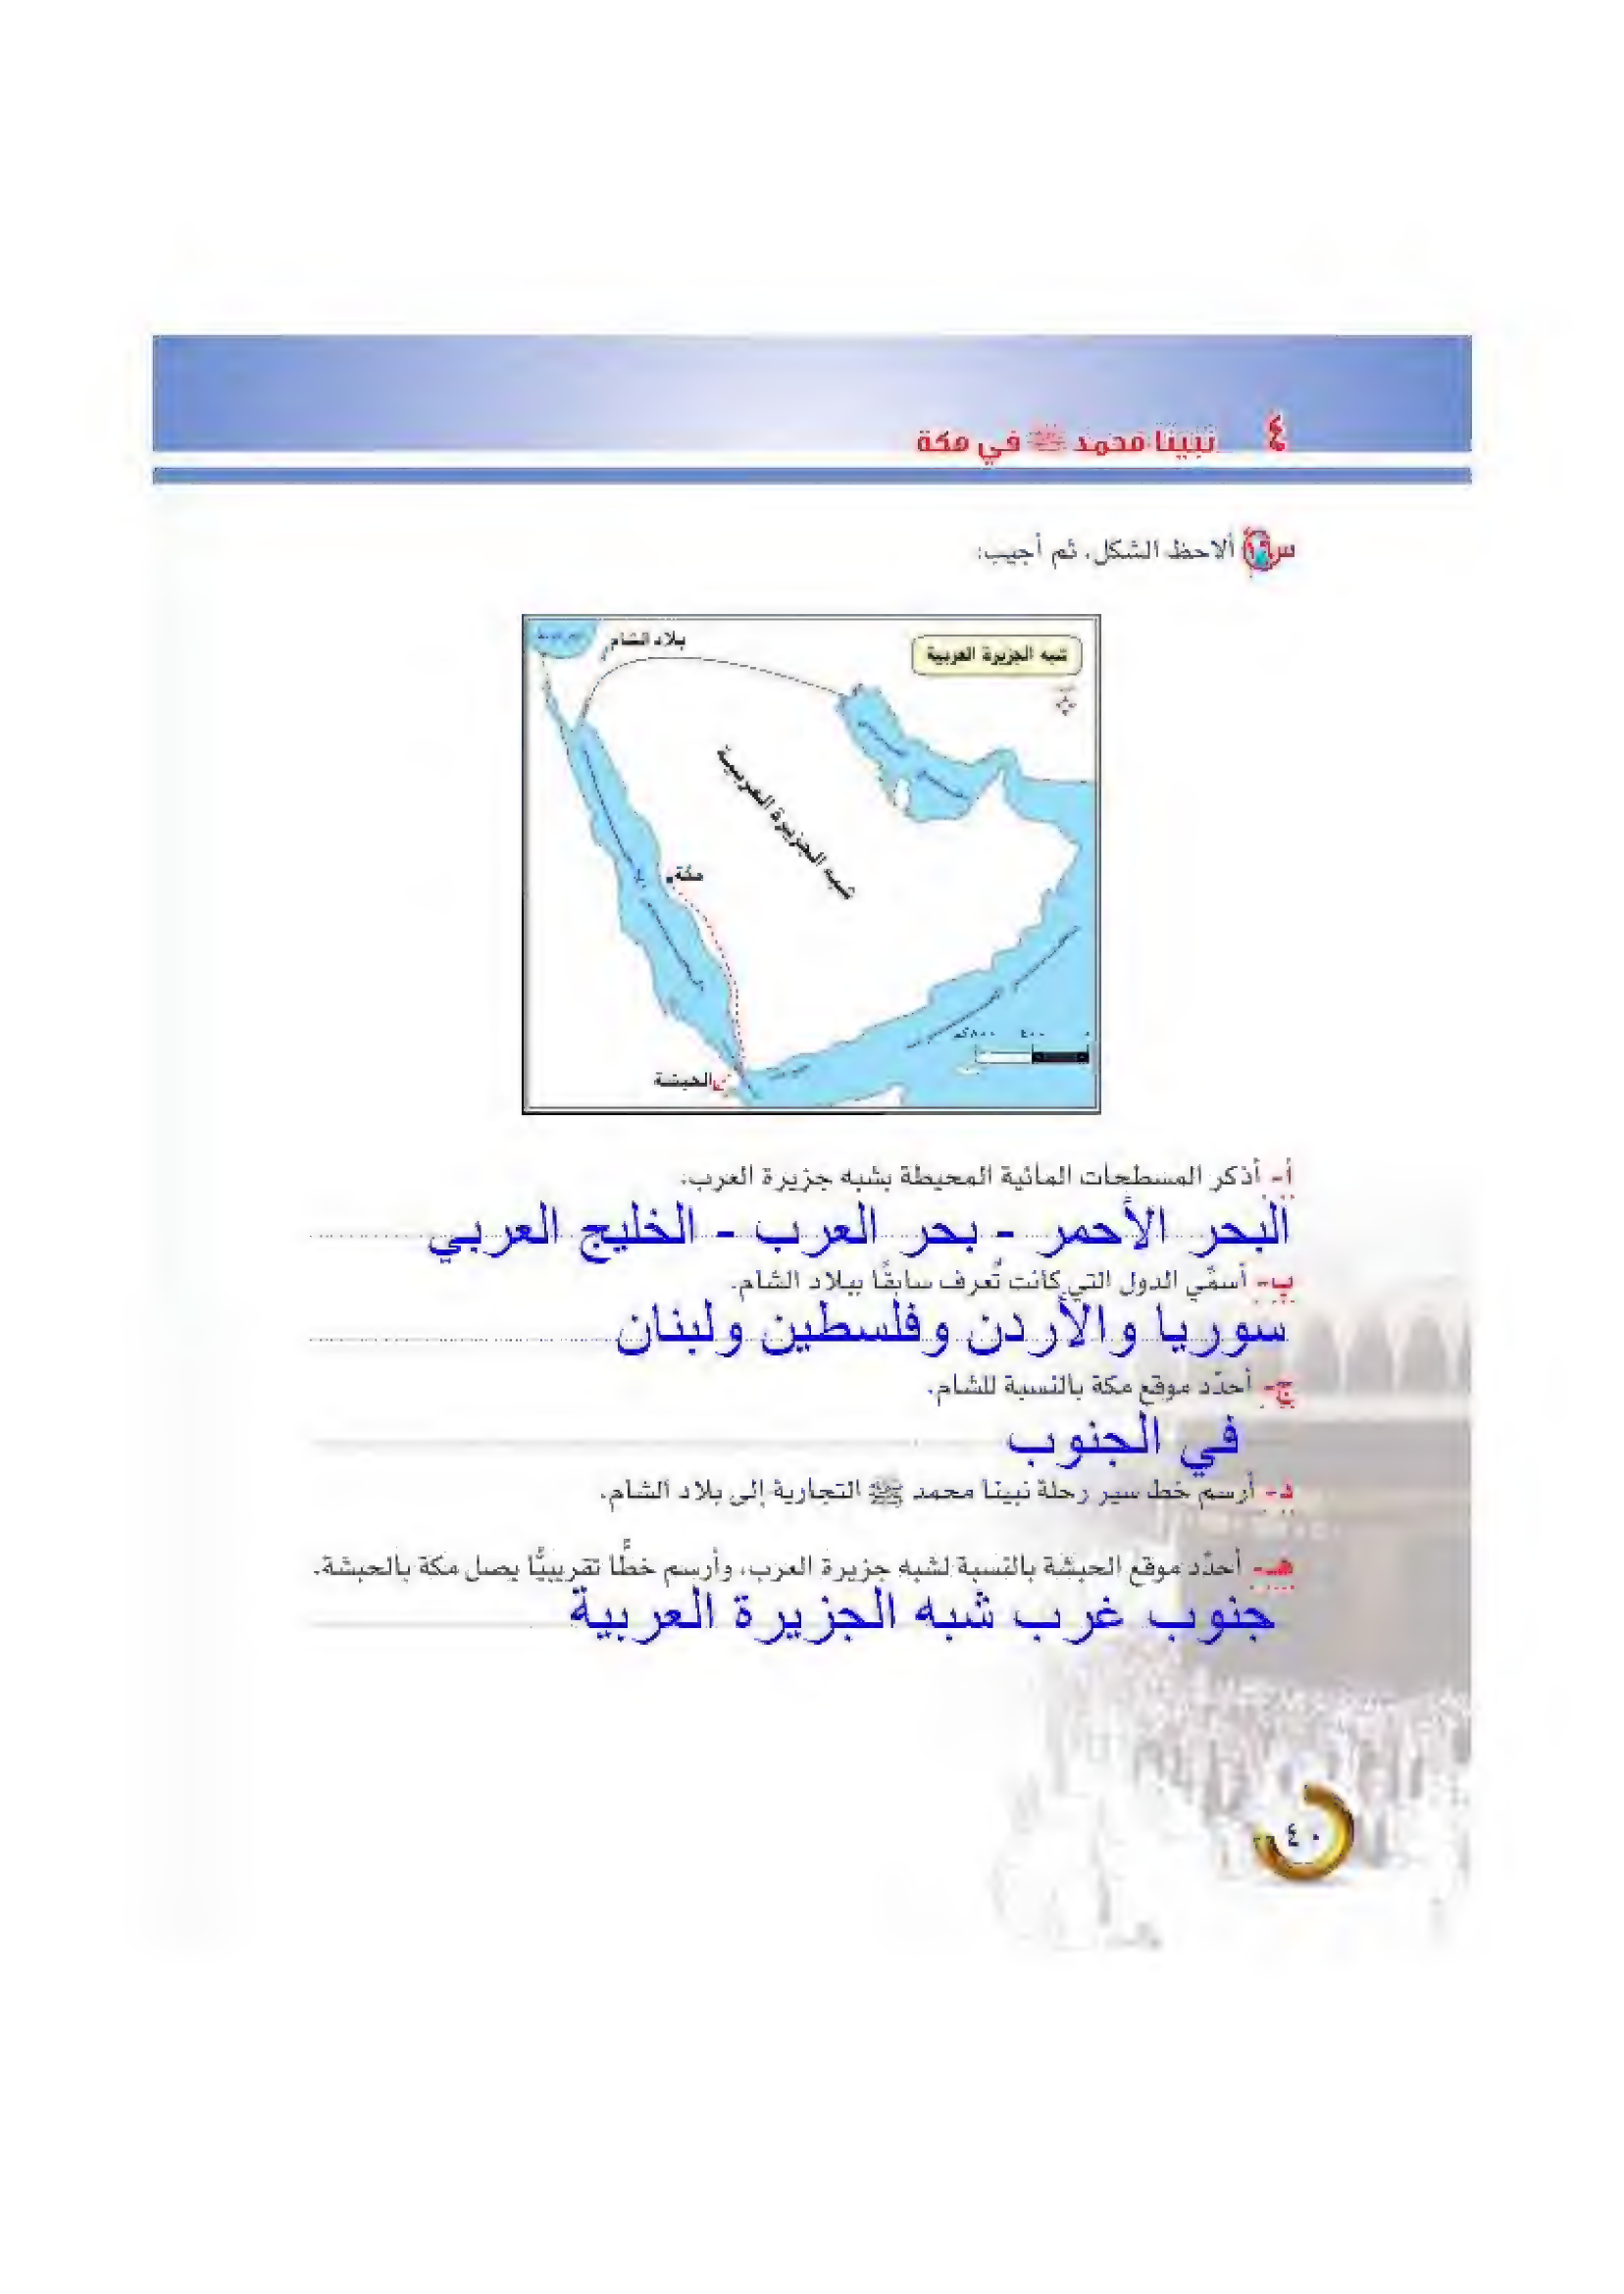 ٤ نبينا محمد ﷺ في مكة
ألاحظ الشكل، ثم أجيب:
شبه الجزيرة العربية
بلاد الشام
شبه الجزيرة العربية
مكة
الحبشة
أ- أذكر المسطحات المائية المحيطة بشبه جزيرة العرب.
البحر الأحمر - بحر العرب - الخليج العربي
ب- أسمّي الدول التي كانت تُعرف سابقًا ببلاد الشام.
سوريا والأردن وفلسطين ولبنان
ج- أحدّد موقع مكة بالنسبة للشام.
في الجنوب
د- أرسم خط سير رحلة نبينا محمد ﷺ التجارية إلى بلاد الشام.
هـ- أحدّد موقع الحبشة بالنسبة لشبه جزيرة العرب، وأرسم خطًّا تقريبيًّا يصل مكة بالحبشة.
جنوب غرب شبه الجزيرة العربية
٤٠